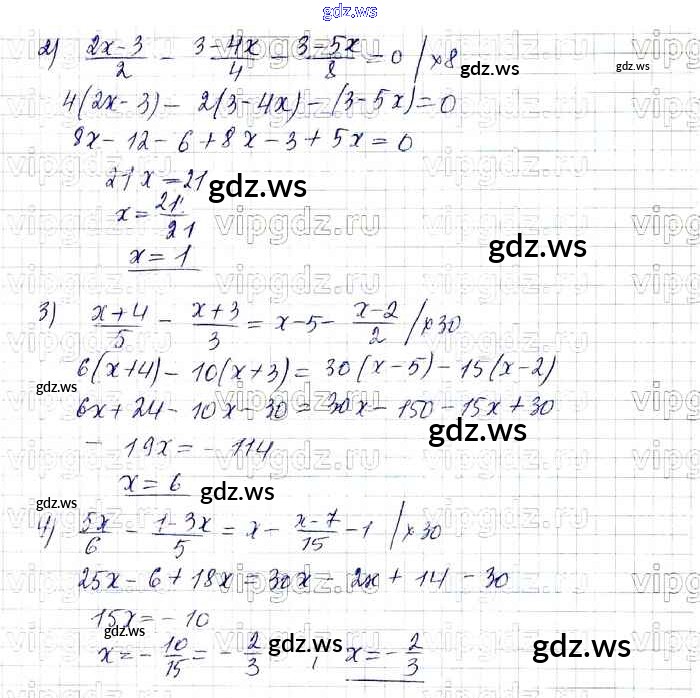 gdz.ws
2) (2x-3)/2 - (3-4x)/4 - (3-5x)/8 = 0 / ×8
gdz.ws
gdz.ws
4(2x-3) - 2(3-4x) - (3-5x) = 0
8x - 12 - 6 + 8x - 3 + 5x = 0
21x = 21
gdz.ws
x = 21/21
gdz.ws
x = 1
3) (x+4)/5 - (x+3)/3 = x - 5 - (x-2)/2 / ×30
6(x+4) - 10(x+3) = 30(x-5) - 15(x-2)
gdz.ws
6x + 24 - 10x - 30 = 30x - 150 - 15x + 30
gdz.ws
- 19x = - 114
x = 6
gdz.ws
gdz.ws
4) 5x/6 - (1-3x)/5 = x - (x-7)/15 - 1 / ×30
25x - 6 + 18x = 30x - 2x + 14 - 30
15x = - 10
gdz.ws
gdz.ws
gdz.ws
x = - 10/15 = - 2/3 , x = - 2/3